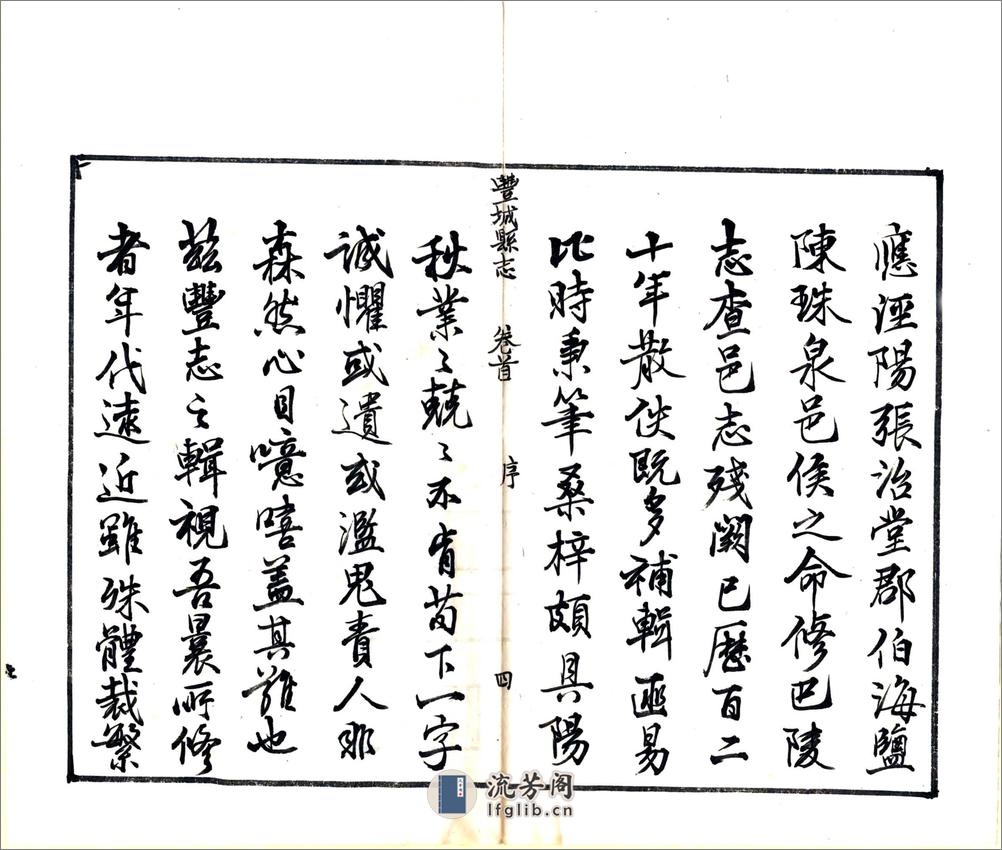 應涇陽張治堂郡伯海鹽
陳珠泉邑侯之命修巴陵
志查邑志殘闕已歷百二
十年散佚旣多補輯匪易
比時秉筆桑梓頗具陽
豐城縣志 卷首 序 四
秋業〻兢〻不肯苟下一字
誠懼或遺或濫鬼責人非
森然心目噫嘻蓋其難也
茲豐志之輯視吾曩所修
者年代遠近雖殊體裁繁
流芳阁
lfglib.cn